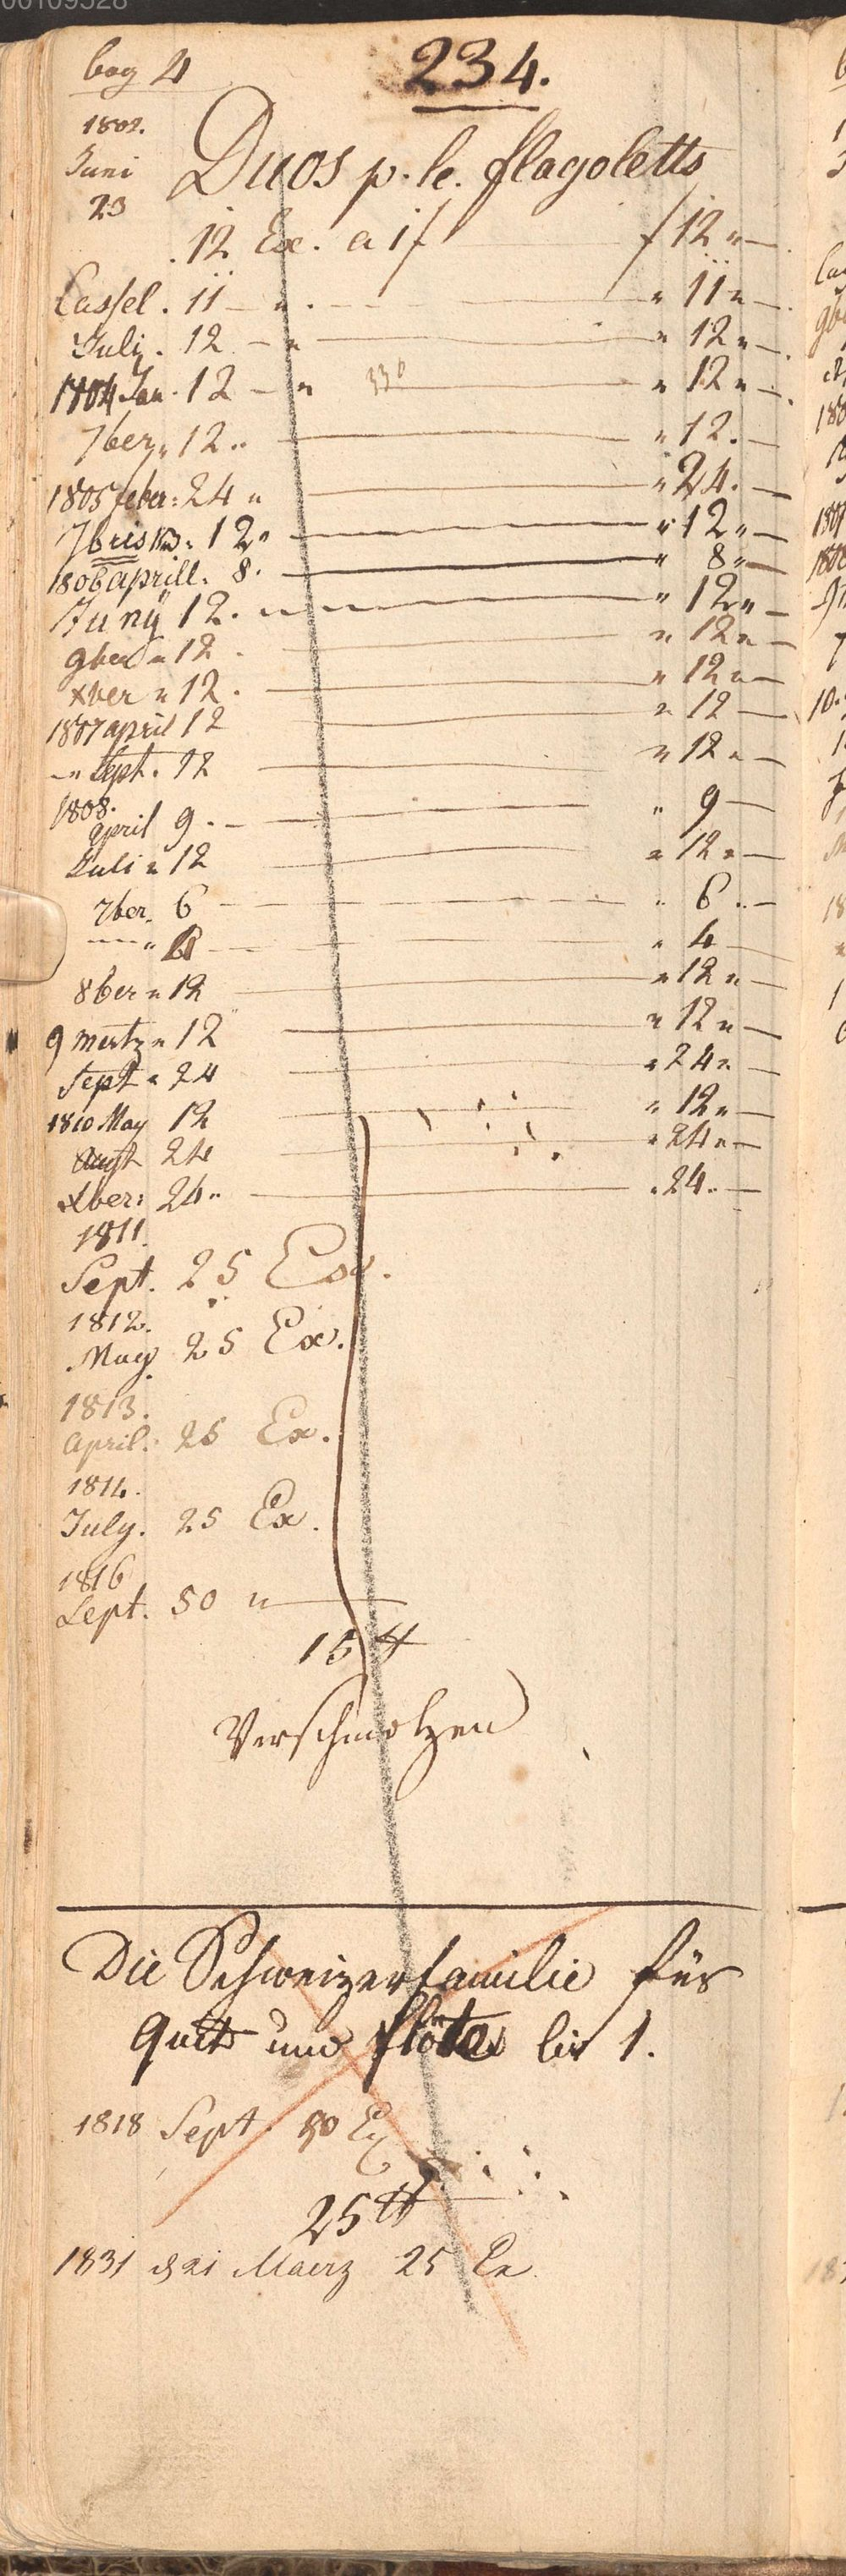 00109528
bog 4
234.
1802.
Juni
23
Duos p. le. flagoletts
12 Ex. a 1f f 12 "
Cassel. 11 — " . — " 11 "
July. 12 — " — " 12 " —
1804 Jan. 12 — " 330 — " 12 " —
7ber " 12 " — " 12. —
1805 feber: 24 " — " 24. —
7bris 12 " — " 12 " —
1806 Aprill. 8. — " 8 " —
Juny 12. — " 12 " —
9ber " 12. — " 12 " —
xber " 12. — " 12 " —
1807 april 12 — " 12 —
— " Sept. 12 — " 12 " —
1808.
april 9. — " 9 —
Juli " 12 — " 12 " —
7ber. 6 — " 6 " —
— " — " 4 —
8ber " 12 — " 12 " —
9 mertz " 12 — " 12 " —
Sept " 24 — " 24 " —
1810 May 12 — " 12 " —
Augt 24 — " 24 " —
xber: 24 " — " 24. —
1811.
Sept. 25 Ex.
1812.
May. 25 Ex.
1813.
April. 25 Ex.
1814.
July. 25 Ex.
1816
Sept. 50 " —
15 ℔
Verschmolzen
Die Schweizerfamilie für
Quit und flöte 1.
1818 Sept. 50 Ex
25 ℔
1831 d 21 Maerz 25 Ex